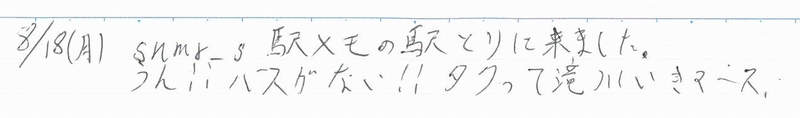 8/18(月) snmr_s 駅メモの駅とりに来ました。
うん!! バスがない!! タクって滝川いきマース.